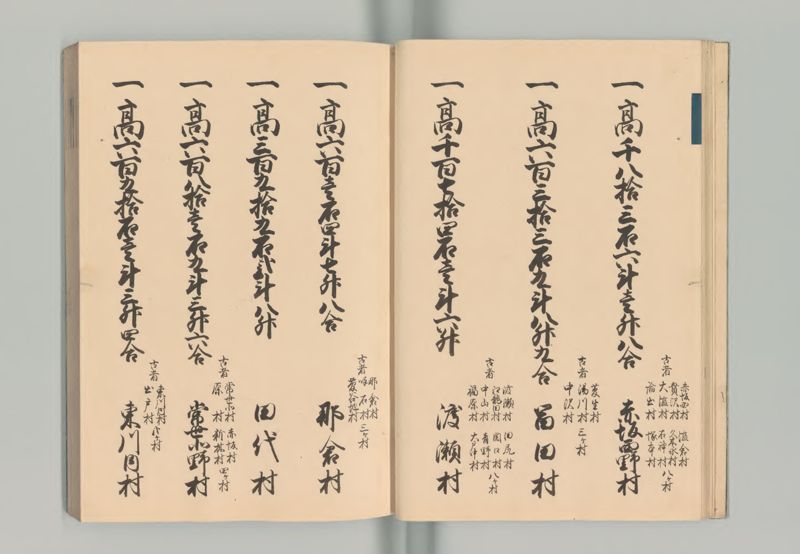 一 高千八拾三石六斗壱升八合
古者
赤坂西村 塩倉村
貫沢村 久木村
大塩村 石神村
論出村 塚本村 八ヶ村
赤坂西野村
一 高六百三拾三石九斗八升九合
古者
菱生村
湯川村 三ヶ村
中沢村
冨田村
一 高千百七拾四石壱斗六升
古者
渡瀬村 田尻村
江龍田村 関口村
中山村 青野村
福原村 八ヶ村
渡瀬村
一 高六百壱石四斗七升八合
古者
那倉村
石村 三ヶ村
那倉村
一 高三百九拾九石弐斗八升
田代村
一 高六百八拾壱石九斗三升六合
古者
常世小村 赤坂村
原村 新板村 四ヶ村
常世小野村
一 高六百九拾石壱斗三升四合
古者
東川同村
出戸村
東川同村